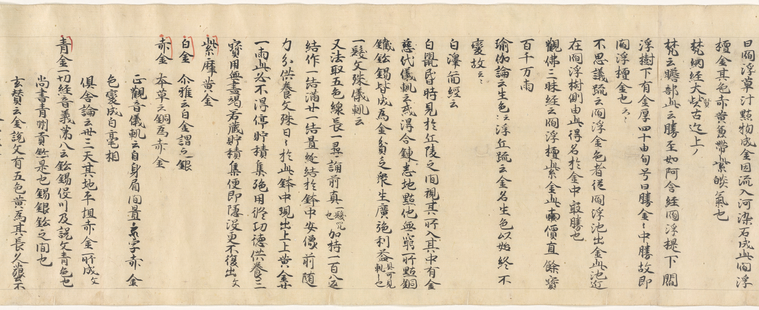 曰閻浮單汁點物成金因流入河染石成此閻浮
檀金其色赤黄㒵帶紫𦦨氣也
梵網經大賢古迹上ノ
梵云贍部此云勝至如阿含經閻浮樹下閻
浮樹下有金厚四十由旬号曰勝金〻中勝故即
閻浮檀金也
不思議疏云閻浮金色者從閻浮池出金此池近
在閻浮樹側由此得名於金中最勝也
觀佛三昧經云閻浮檀紫金此𠃵價直餘寳
百千万兩
瑜伽論云生色 浮丘疏云金名生色以始終不
變故云〻
白澤葡經云
白鼠昏時見於丘陵之間視其所入其中有金
慈氏儀軌云或得合鍊悉地點他無窮所點銅
鐵鈆錫皆成為金貧乏衆生廣施利益
一髻文殊儀軌云
又法取五色線長一尋誦前真言加持一百八遍
結作一結滿廿一結置𮈔結於鉢中安像前随
力分供養文殊日〻於此鉢中現出上上黄金廿
一兩此必不得停貯積集施用修功德供養三
寳用無書竭若蔵貯積集便即隱没更不復出文
紫磨黄金
白金 介雅云白金謂之銀
赤金 本草云銅為赤金
正觀音儀軌云自身眉間置 字赤金
色變成白毫相
俱舍論云卅三天其地平坦赤金所成文
青金 一切經音義第八云鈆錫促川及説文青色也
尚書青州貢鈆是也錫銀鈆之間也
玄賛云金説文有五色黄為其長久薶不